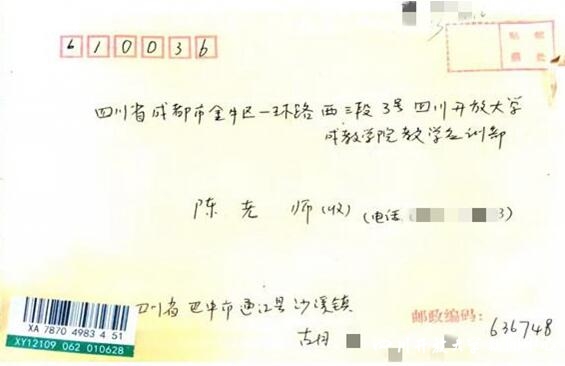 610036
贴 邮
票 处
四川省成都市金牛区一环路西三段3号四川开放大学
成教学院教学培训部
陈老师(收) (电话 3)
XA 7870
4983 4 51
XY12109 062 010628
四川省巴中市通江县沙溪镇
邮政编码: 636748